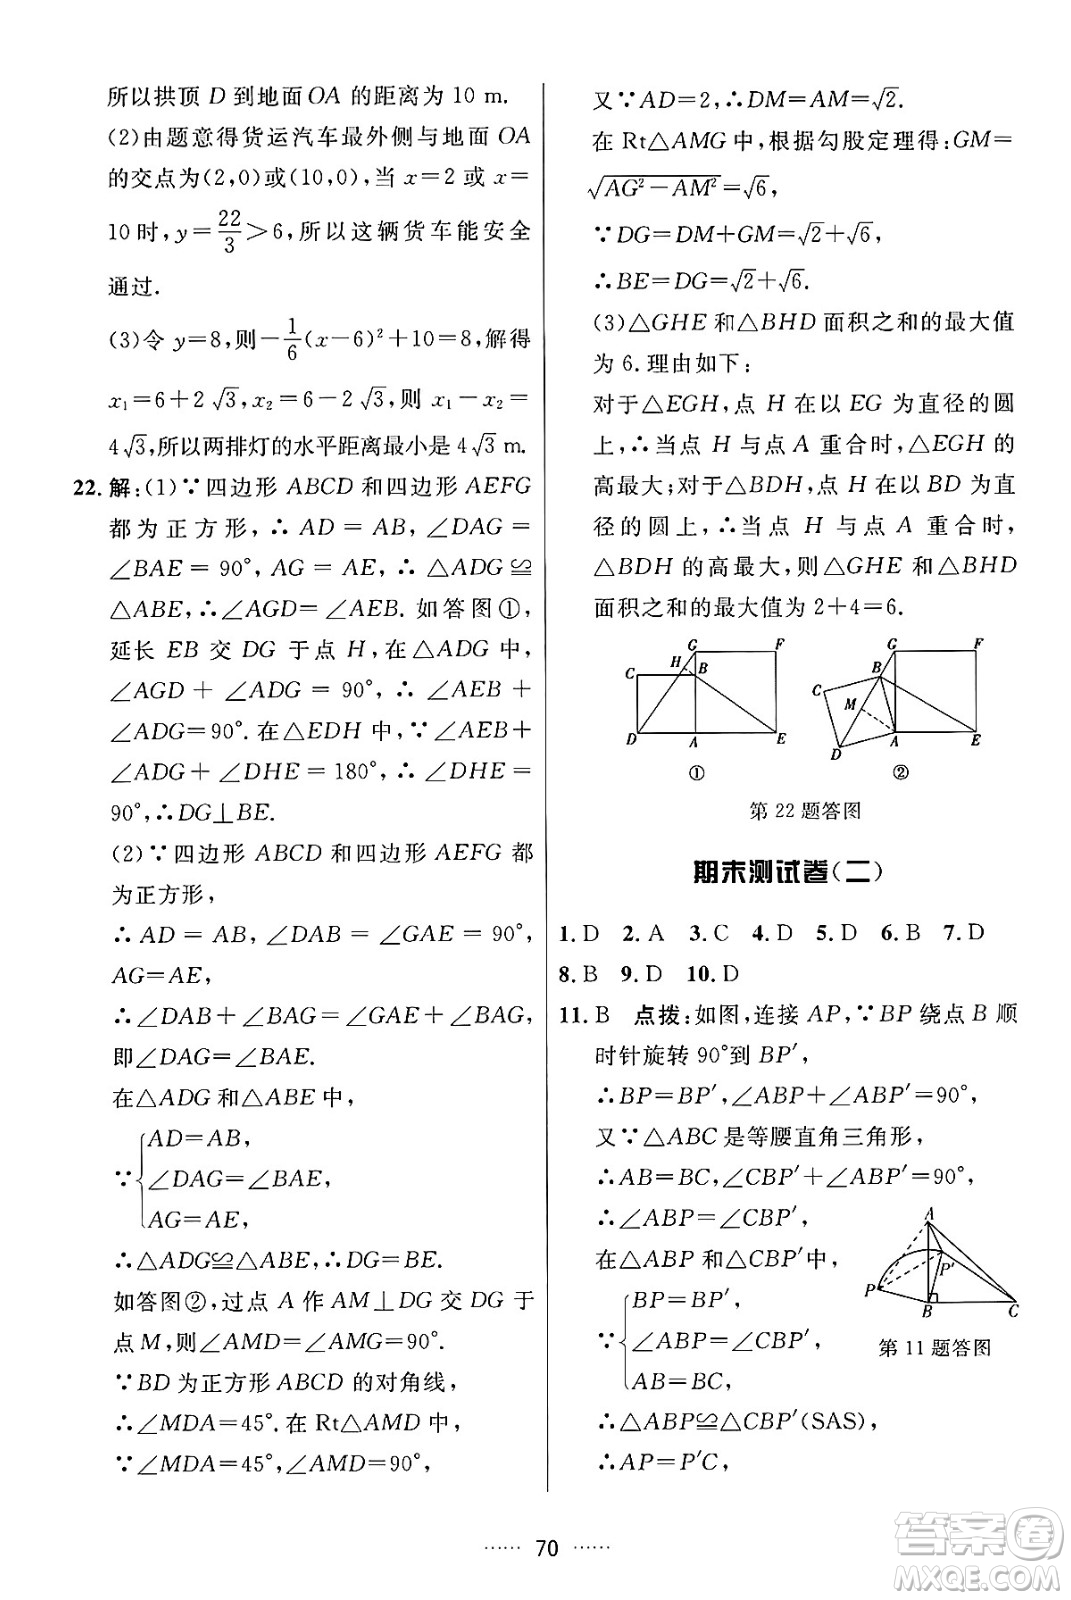 所以拱顶 D 到地面 OA 的距离为 10 m.
(2)由题意得货运汽车最外侧与地面 OA
的交点为(2,0)或(10,0),当 x=2 或 x=
10 时,y=22/3>6,所以这辆货车能安全
通过.
(3)令 y=8,则-1/6(x-6)²+10=8,解得
x₁=6+2√3,x₂=6-2√3,则 x₁-x₂=
4√3,所以两排灯的水平距离最小是 4√3 m.
22.解:(1)∵四边形 ABCD 和四边形 AEFG
都为正方形,∴AD=AB,∠DAG=
∠BAE=90°,AG=AE,∴△ADG≌
△ABE,∴∠AGD=∠AEB.如答图①,
延长 EB 交 DG 于点 H,在△ADG 中,
∠AGD+∠ADG=90°,∴∠AEB+
∠ADG=90°.在△EDH 中,∵∠AEB+
∠ADG+∠DHE=180°,∴∠DHE=
90°,∴DG⊥BE.
(2)∵四边形 ABCD 和四边形 AEFG 都
为正方形,
∴AD=AB,∠DAB=∠GAE=90°,
AG=AE,
∴∠DAB+∠BAG=∠GAE+∠BAG,
即∠DAG=∠BAE.
在△ADG 和△ABE 中,
AD=AB,
∵{∠DAG=∠BAE,
AG=AE,
∴△ADG≌△ABE,∴DG=BE.
如答图②,过点 A 作 AM⊥DG 交 DG 于
点 M,则∠AMD=∠AMG=90°.
∵BD 为正方形 ABCD 的对角线,
∴∠MDA=45°.在 Rt△AMD 中,
∵∠MDA=45°,∠AMD=90°,
又∵AD=2,∴DM=AM=√2.
在 Rt△AMG 中,根据勾股定理得:GM=
√AG²-AM²=√6,
∵DG=DM+GM=√2+√6,
∴BE=DG=√2+√6.
(3)△GHE 和△BHD 面积之和的最大值
为 6.理由如下:
对于△EGH,点 H 在以 EG 为直径的圆
上,∴当点 H 与点 A 重合时,△EGH 的
高最大;对于△BDH,点 H 在以 BD 为直
径的圆上,∴当点 H 与点 A 重合时,
△BDH 的高最大,则△GHE 和△BHD
面积之和的最大值为 2+4=6.
G F H C B D A E
G F B C M D A E
① ②
第 22 题答图
期末测试卷(二)
1.D 2.A 3.C 4.D 5.D 6.B 7.D
8.B 9.D 10.D
11.B 点拨:如图,连接 AP,∵BP 绕点 B 顺
时针旋转 90°到 BP′,
∴BP=BP′,∠ABP+∠ABP′=90°,
又∵△ABC 是等腰直角三角形,
∴AB=BC,∠CBP′+∠ABP′=90°,
∴∠ABP=∠CBP′,
在△ABP 和△CBP′中,
BP=BP′,
∵{∠ABP=∠CBP′,
AB=BC,
∴△ABP≌△CBP′(SAS),
∴AP=P′C,
A P′ P B C
第 11 题答图
70
答案圈
MXQE.COM